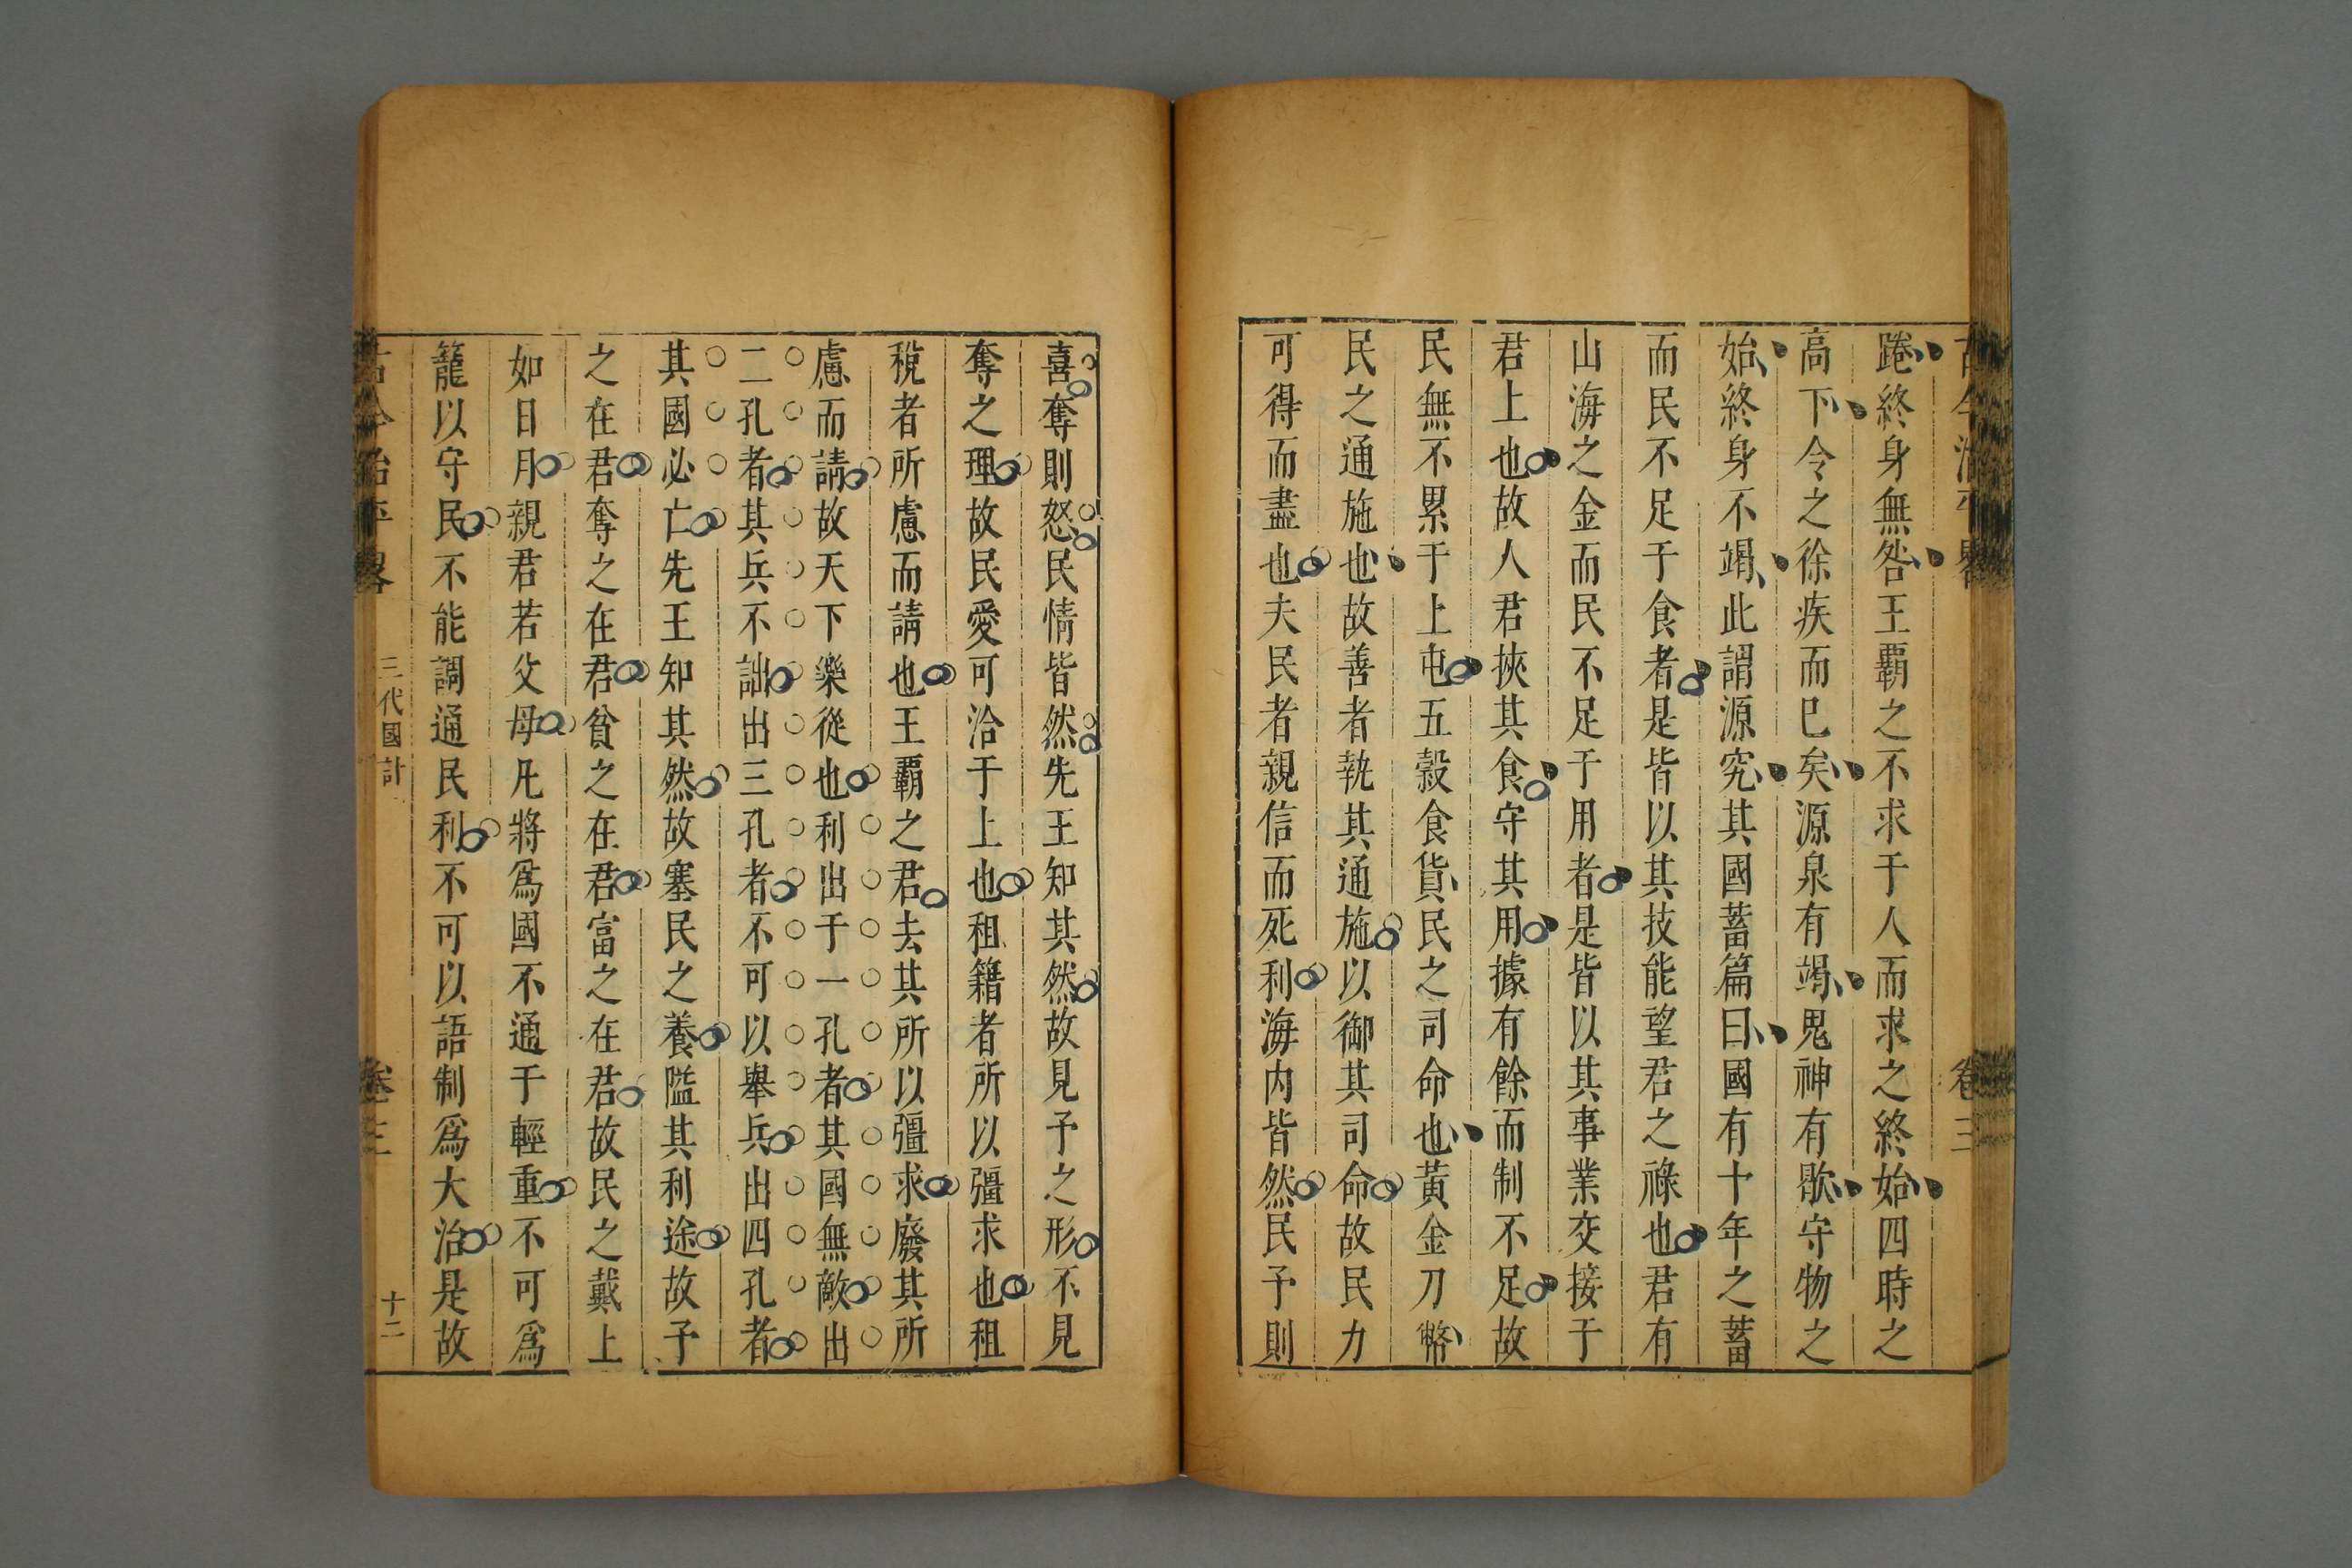 古今治平畧
卷三
踡終身無咎王覇之不求于人而求之終始四時之
高下令之徐疾而已矣源泉有竭鬼神有歇守物之
始終身不竭此謂源究其國蓄篇曰國有十年之蓄
而民不足于食者是皆以其技能望君之祿也君有
山海之金而民不足于用者是皆以其事業交接于
君上也故人君挾其食守其用據有餘而制不足故
民無不累于上也五穀食貨民之司命也黃金刀幣
民之通施也故善者執其通施以御其司命故民力
可得而盡也夫民者親信而死利海內皆然民予則
喜奪則怒民情皆然先王知其然故見予之形不見
奪之理故民愛可洽于上也租籍者所以彊求也租
稅者所慮而請也王覇之君去其所以彊求廢其所
慮而請故天下樂從也利出于一孔者其國無敵出
二孔者其兵不詘出三孔者不可以舉兵出四孔者
其國必亡先王知其然故塞民之養隘其利途故予
之在君奪之在君貧之在君富之在君故民之戴上
如日月親君若父母凡將爲國不通于輕重不可爲
籠以守民不能調通民利不可以語制爲大治是故
古今治平畧
三代國計
卷三
十二